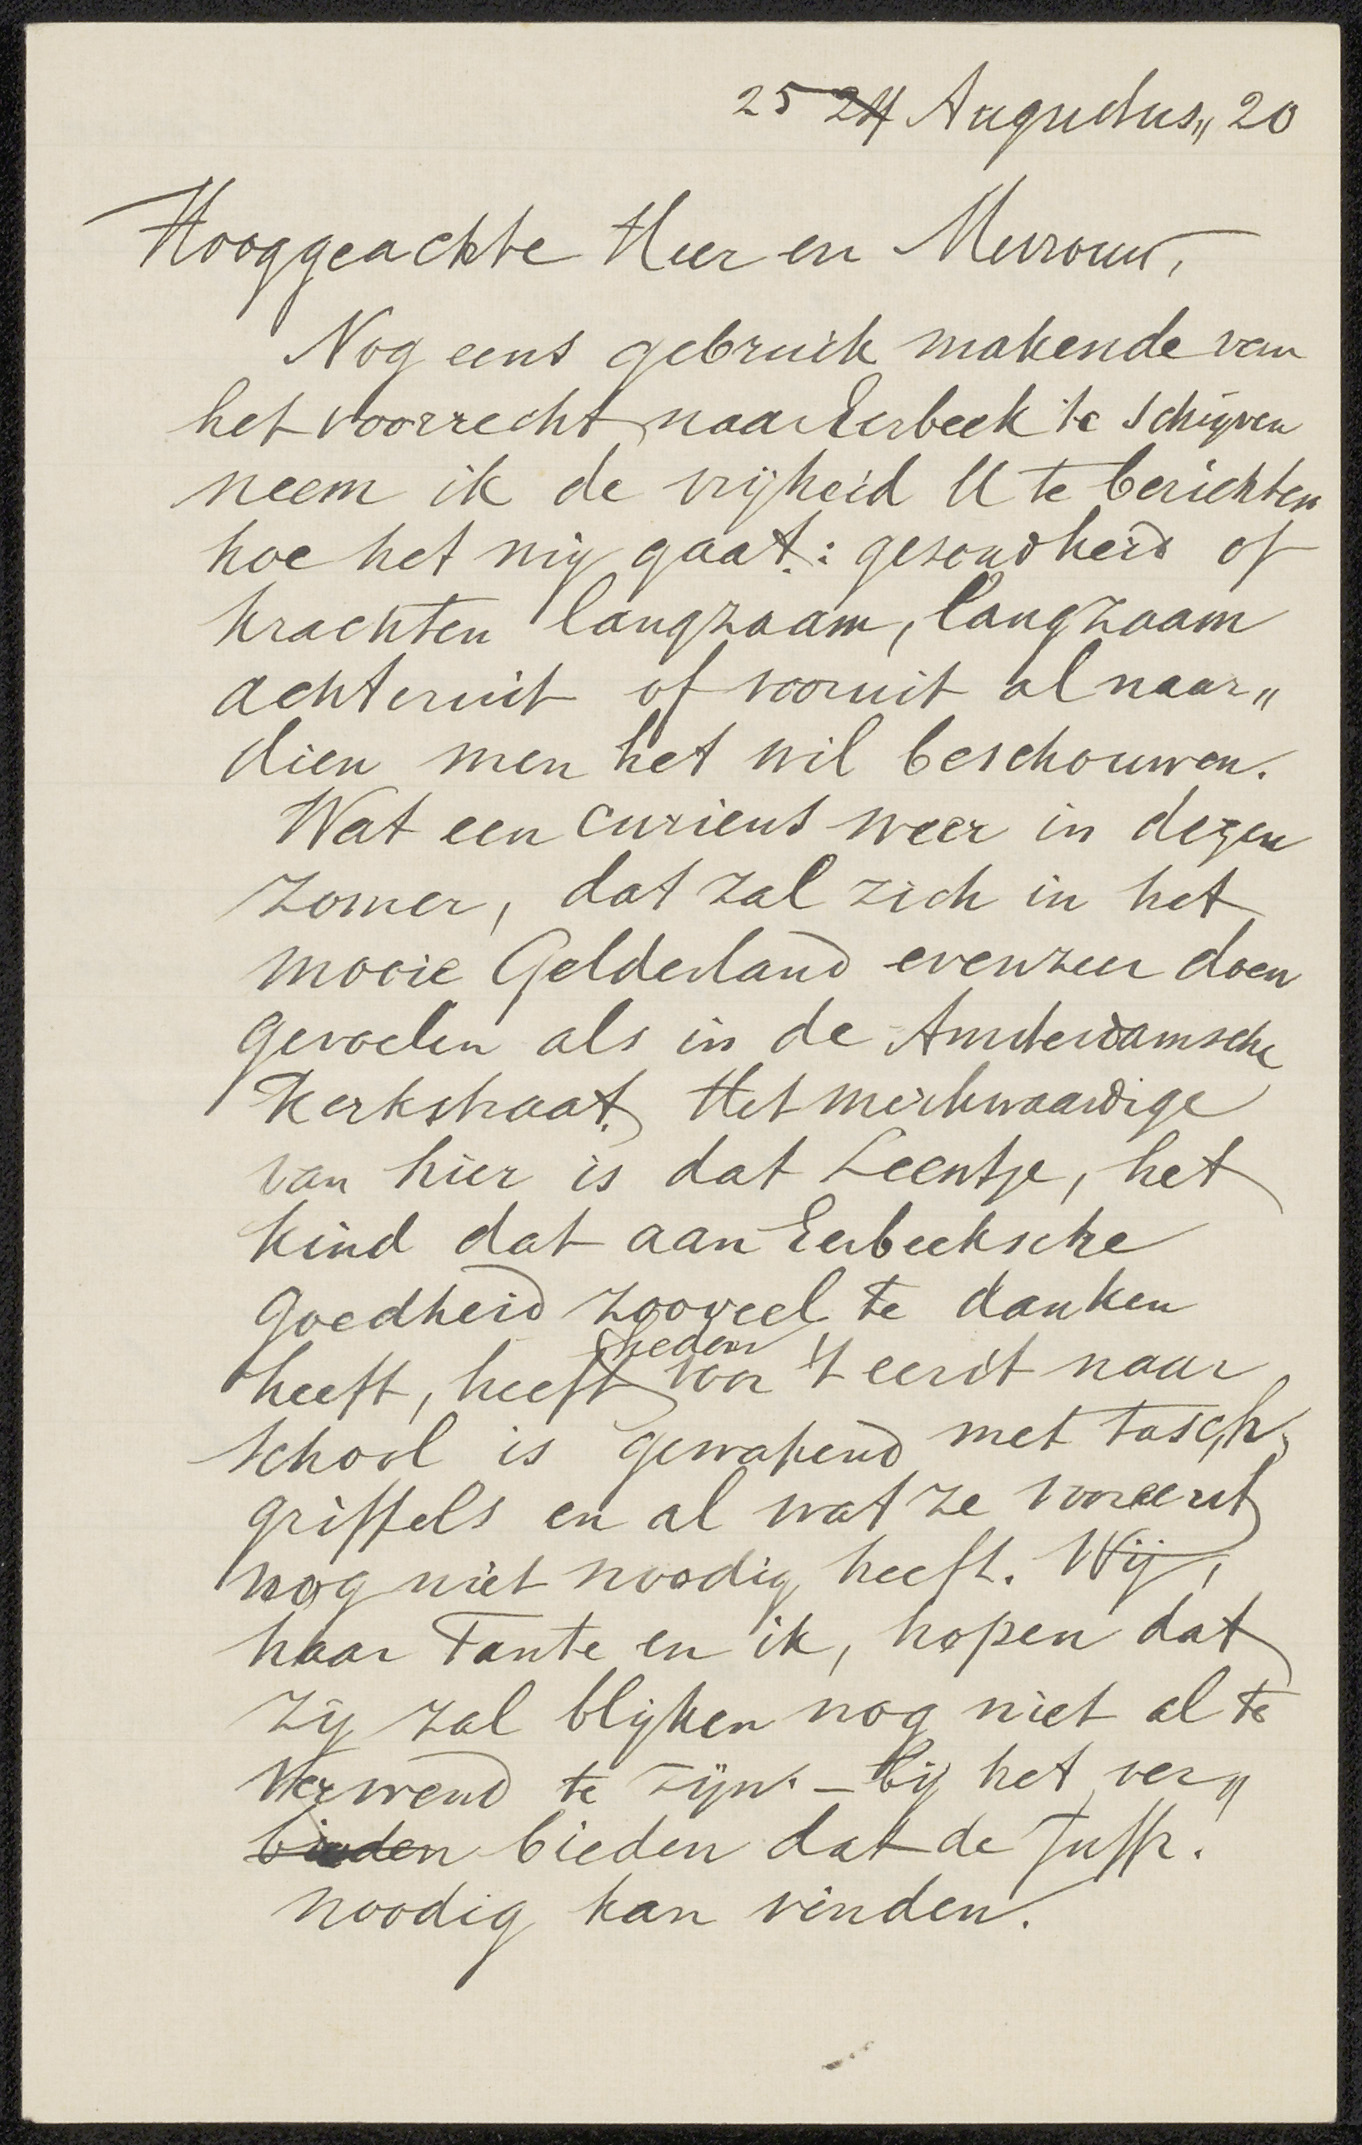 25 24 Augustus„ 20
Hooggeachte Heer en Mevrouw,
Nog eens gebruik makende van
het voorrecht naar Eerbeek te schrijven
neem ik de vrijheid U te berichten
hoe het mij gaat: gesondheid of
krachten langzaam, langzaam
achteruit of vooruit al naar„
dien men het wil beschouwen.
Wat een curieus weer in dezen
zomer, dat zal zich in het
mooie Gelderland evenzeer doen
gevoelen als in de Amsterdamsche
Kerkstraat. Het merkwaardige
van hier is dat Leentje, het
kind dat aan Eerbeeksche
goedheid zooveel te danken
heden
heeft, heeft voor 't eerst naar
school is gewapend met tasch,
griffels en al wat ze vooreerst
nog niet noodig heeft. Wij,
haar Tante en ik, hopen dat
zij zal blijken nog niet al te
verwend te zijn. – bij het ver„
binden bieden dat de Juffr.
noodig kan vinden.